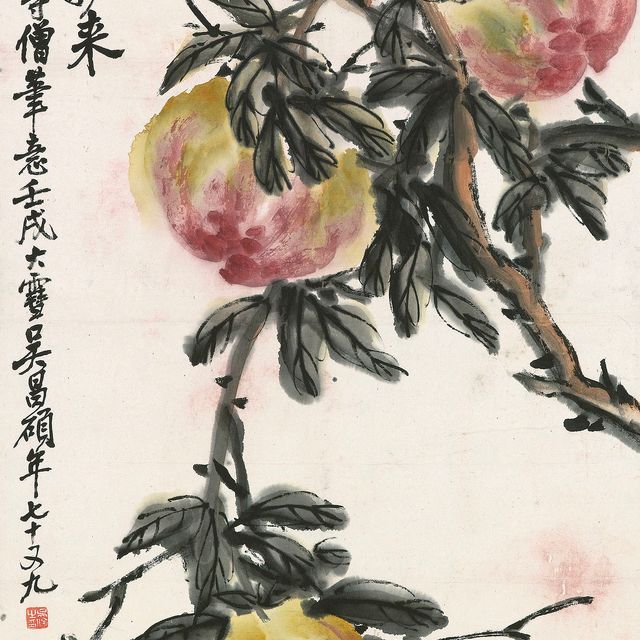 来
僧筆意壬戌大雪吳昌碩年七十又九